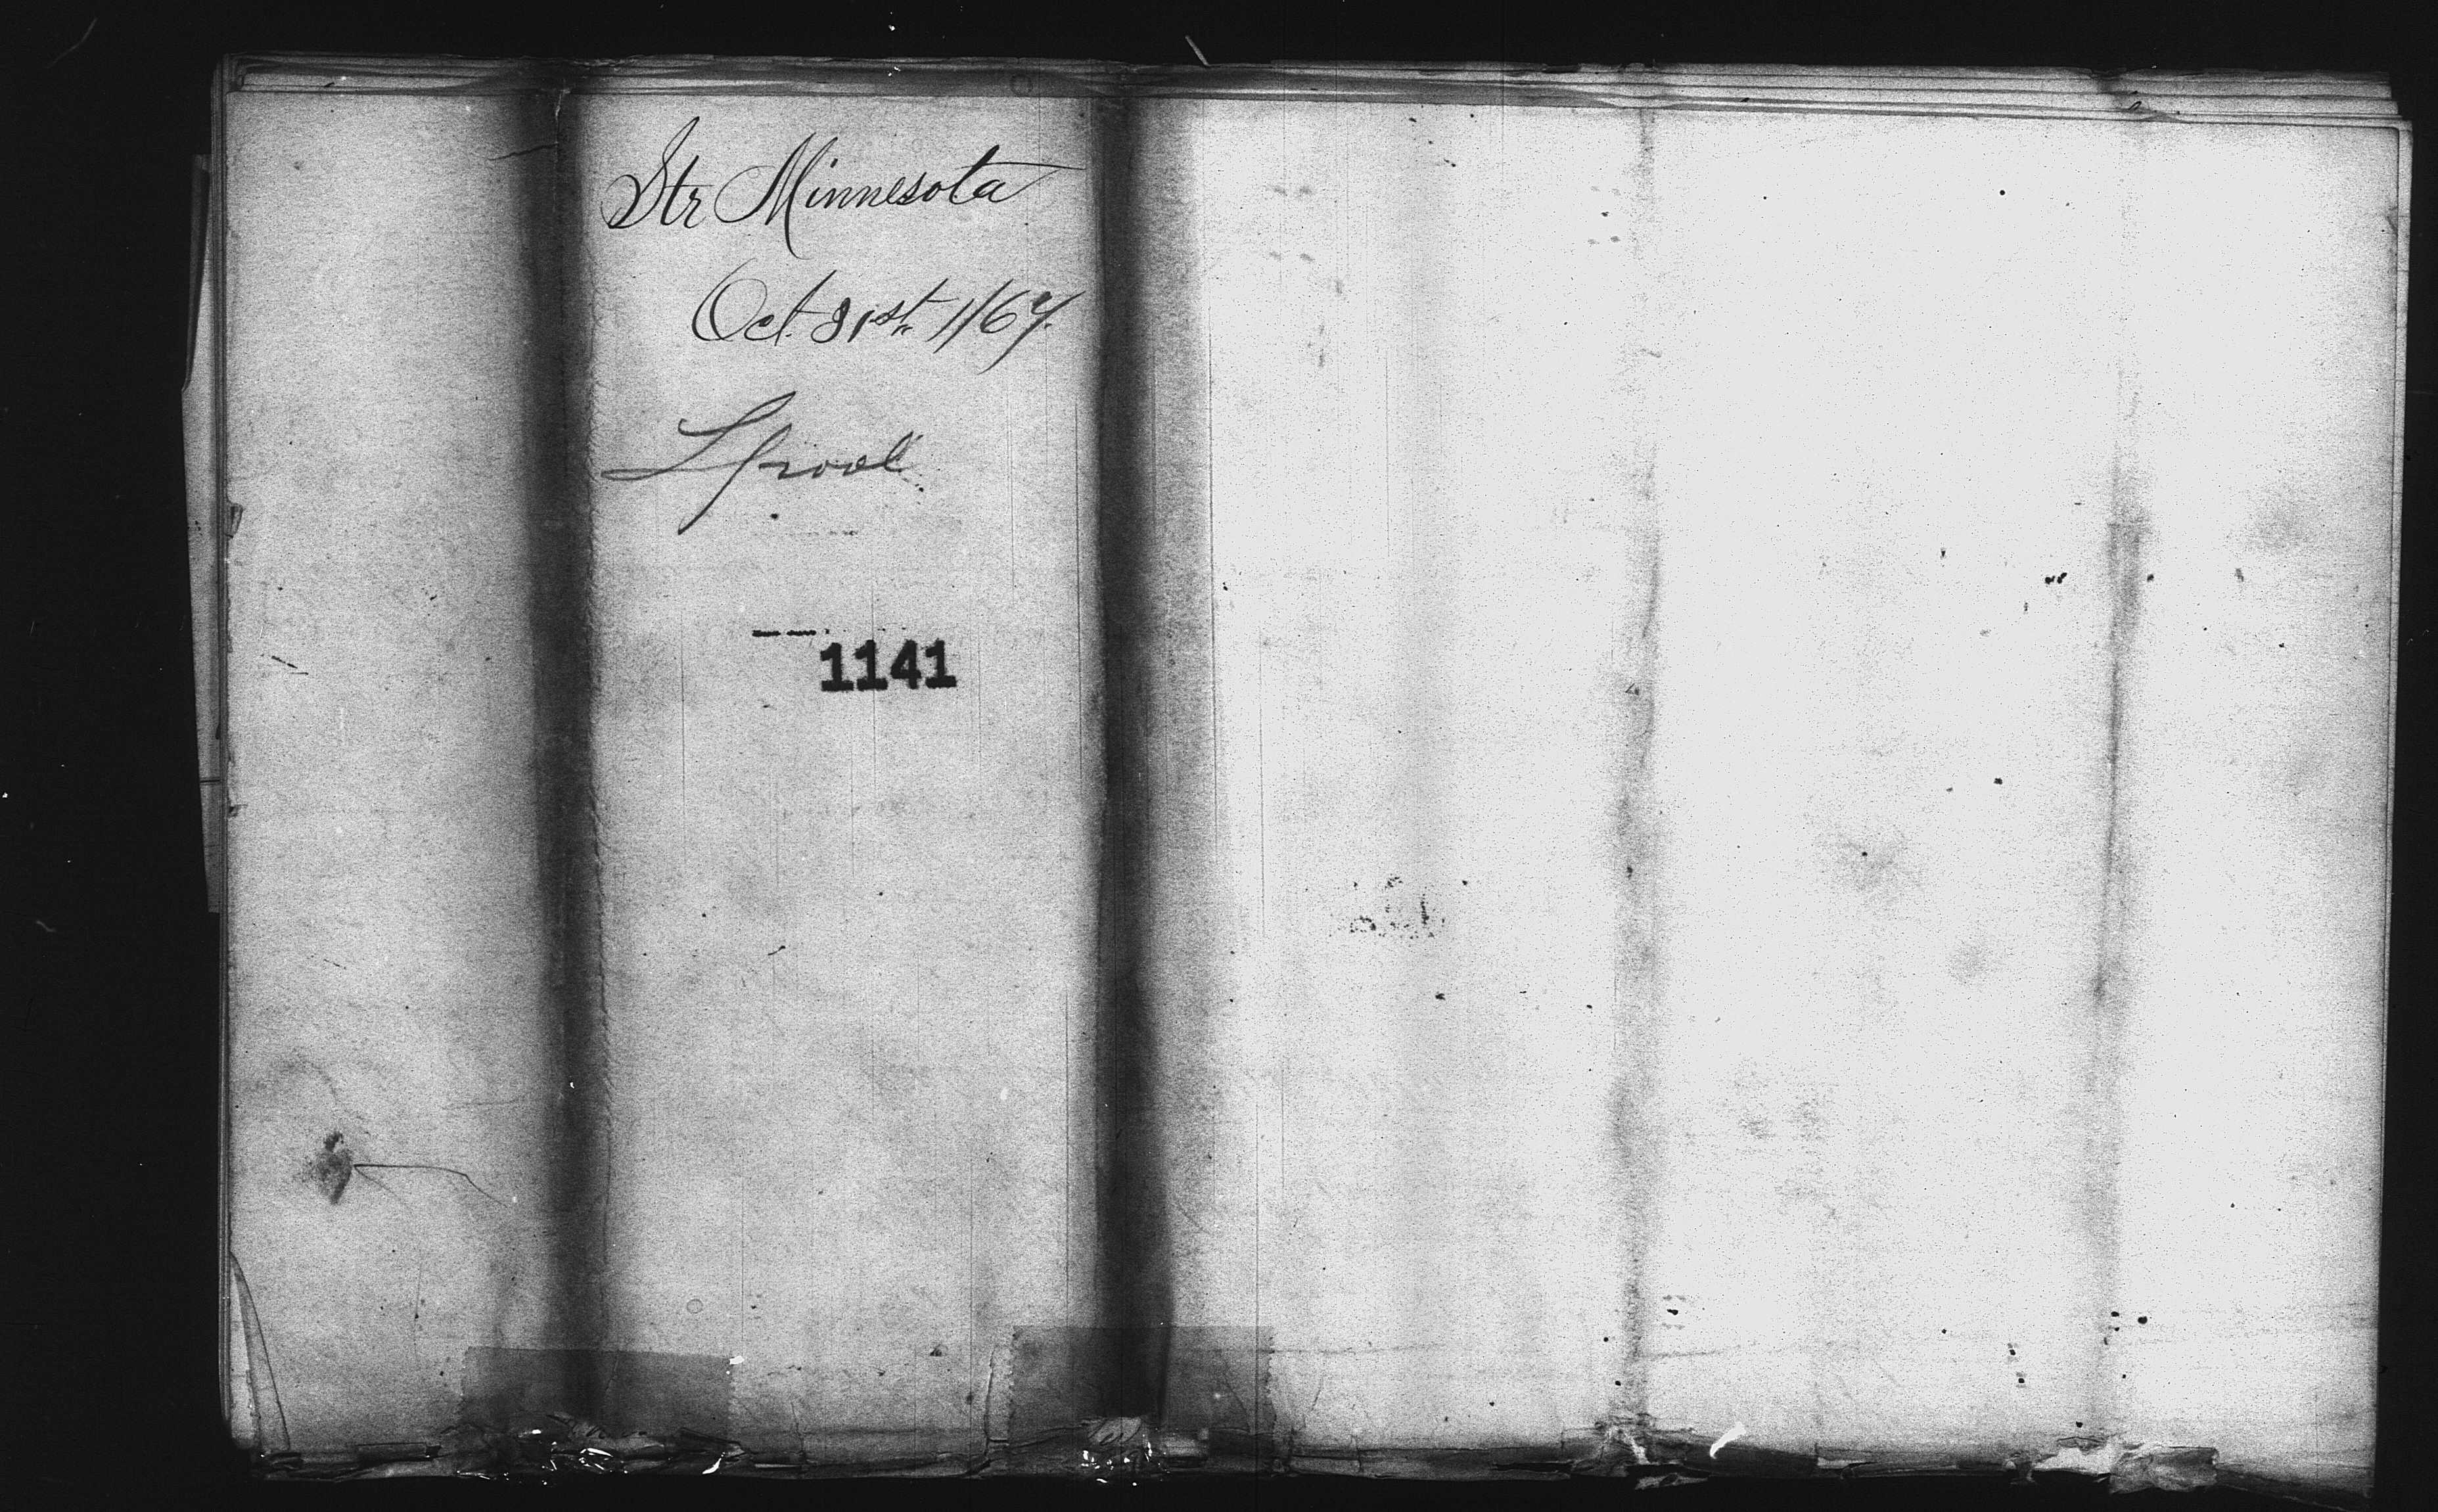 Str Minnesota
Oct. 31st 1867.
Lpool
1141